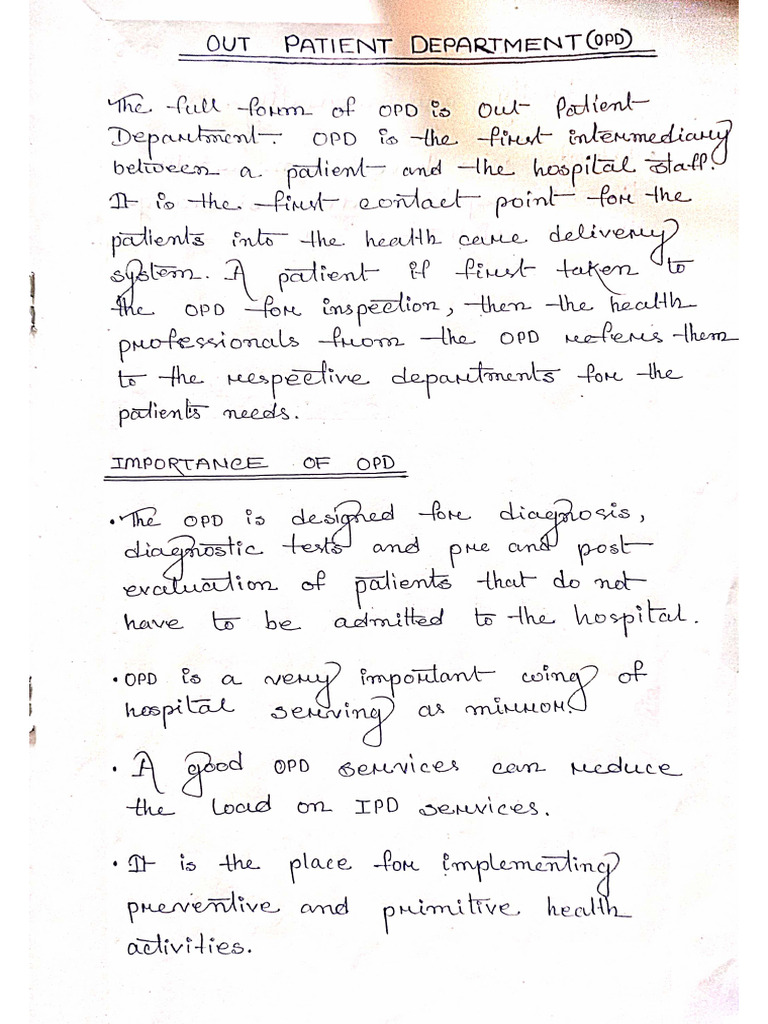 OUT PATIENT DEPARTMENT (OPD)
The full form of OPD is Out Patient
Department. OPD is the first intermediary
between a patient and the hospital staff.
It is the first contact point for the
patients into the health care delivery
system. A patient if first taken to
the OPD for inspection, then the health
professionals from the OPD refers them
to the respective departments for the
patients needs.
IMPORTANCE OF OPD
• The OPD is designed for diagnosis,
diagnostic tests and pre and post
evaluation of patients that do not
have to be admitted to the hospital.
• OPD is a very important wing of
hospital serving as mirror.
• A good OPD services can reduce
the load on IPD services.
• It is the place for implementing
preventive and primitive health
activities.